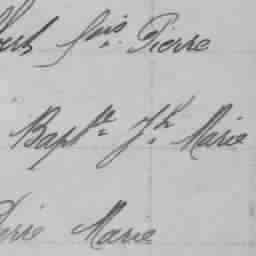 Fois Pierre
Bapte Jh Marie
Pierre Marie